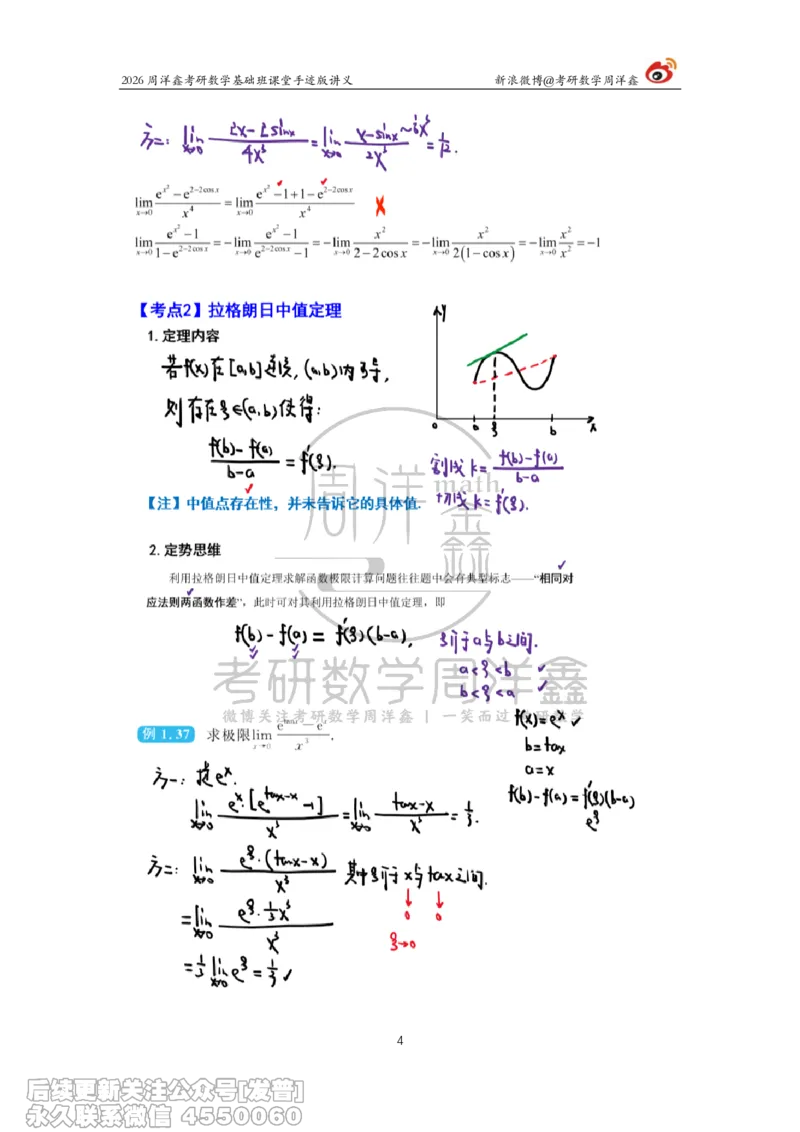 2026 周洋鑫考研数学基础班课堂手迹版讲义 新浪微博@考研数学周洋鑫
方二: lim x→0 (2x-2sinx)/(4x³) = lim x→0 (x-sinx ~ ⅙x³)/(2x³) = 1/12.
lim x→0 (e^(x²) - e^(2-2cos x))/x⁴ = lim x→0 (e^(x²) - 1 + 1 - e^(2-2cos x))/x⁴ ✗
lim x→0 (e^(x²) - 1)/(1 - e^(2-2cos x)) = -lim x→0 (e^(x²) - 1)/(e^(2-2cos x) - 1) = -lim x→0 x²/(2-2cos x) = -lim x→0 x²/(2(1-cos x)) = -lim x→0 x²/x² = -1
【考点2】拉格朗日中值定理
1. 定理内容
若f(x)在[a,b]连续, (a,b)内可导,
则存在ξ∈(a,b)使得:
(f(b)-f(a))/(b-a) = f'(ξ).
y
0 a ξ b x
割线 k = (f(b)-f(a))/(b-a)
切线 k = f'(ξ).
【注】中值点存在性，并未告诉它的具体值.
2. 定势思维
利用拉格朗日中值定理求解函数极限计算问题往往题中会有典型标志——“相同对
应法则两函数作差”，此时可对其利用拉格朗日中值定理，即
f(b)-f(a) = f'(ξ)(b-a),
ξ介于a与b之间.
a<ξ<b ✓
b<ξ<a ✓
周洋鑫
math
考研数学周洋鑫
微博关注考研数学周洋鑫 | 一笑而过 考研数学
例 1.37 求极限 lim x→0 (e^(tan x) - e^x)/x³.
f(x)=e^x ✓
b=tanx
a=x
f(b)-f(a)=f'(ξ)(b-a)
e^ξ
方一: 提e^x.
lim x→0 e^x·[e^(tanx-x) - 1]/x³ = lim x→0 (tanx-x)/x³ = 1/3.
方二: lim x→0 e^ξ·(tanx-x)/x³ 其中ξ介于x与tanx之间.
↓ ↓
0 0
ξ→0
= lim x→0 e^ξ·⅓x³/x³
= ⅓ lim x→0 e^ξ = 1/3 ✓
4
后续更新关注公众号[发普]
永久联系微信 4550060